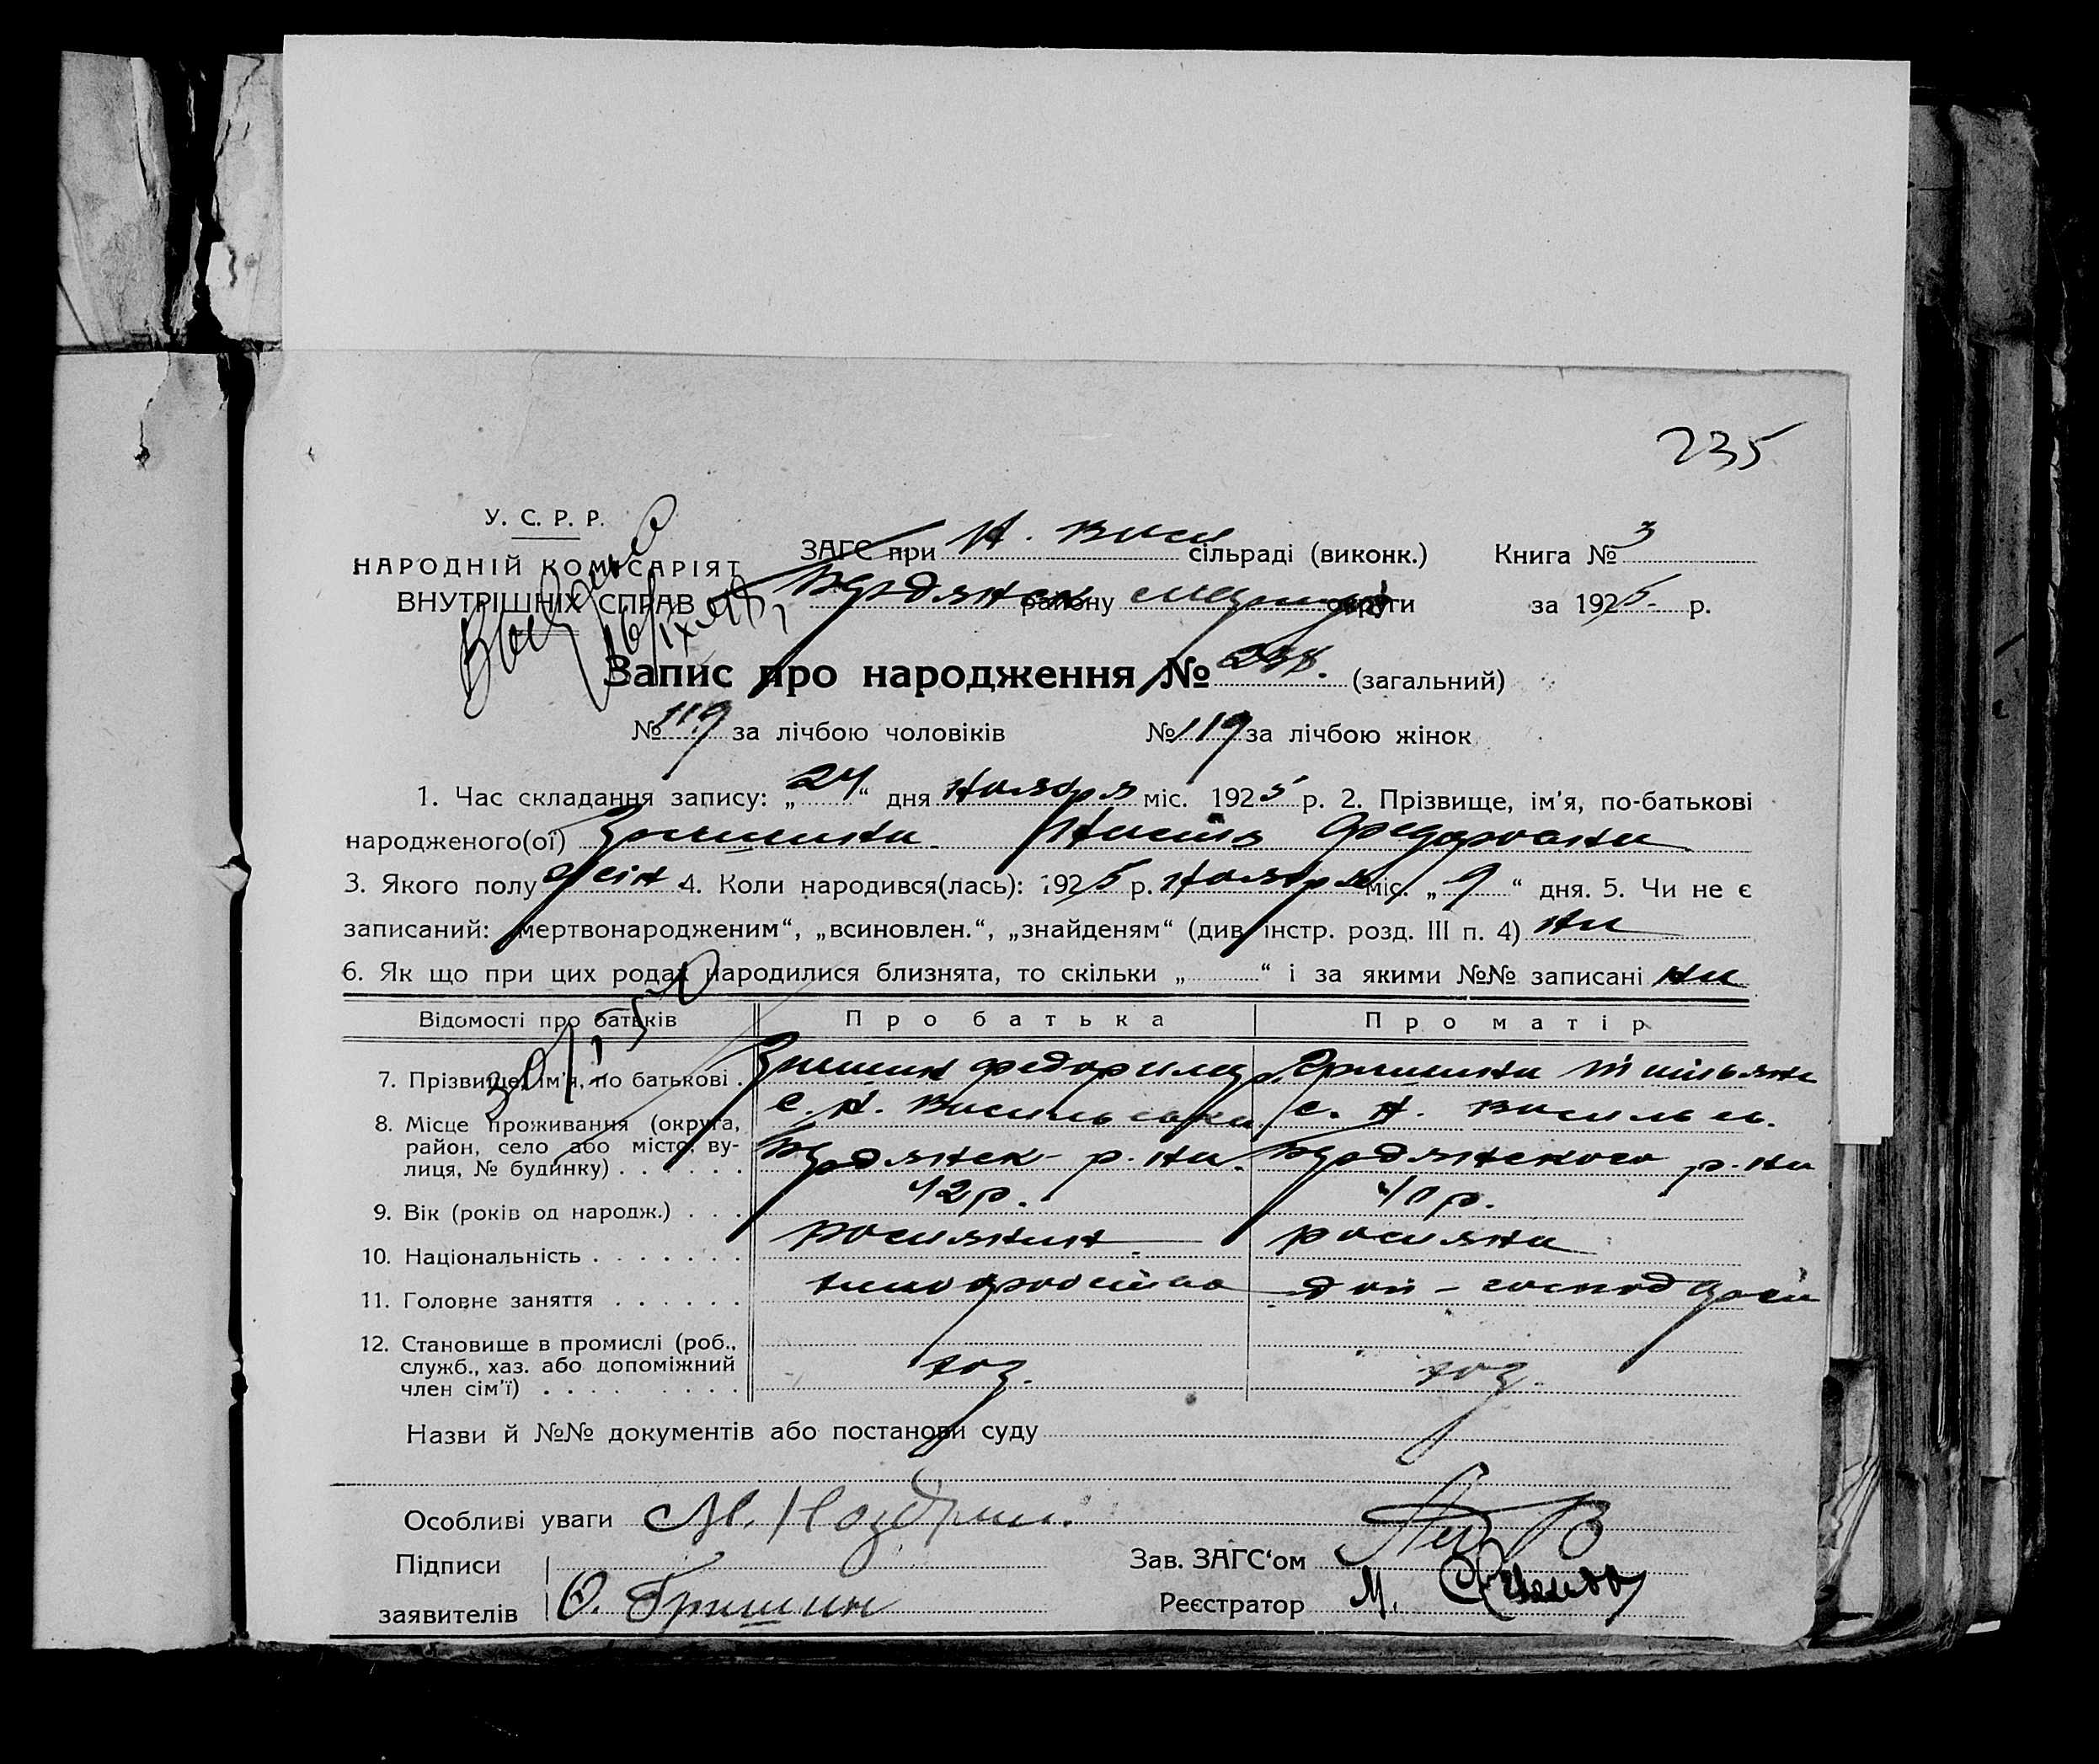 235
У. С. Р. Р.
НАРОДНІЙ КОМІСАРІЯТ
ВНУТРІШНІХ СПРАВ
ЗАГС при Н. Васил сільраді (виконк.) Книга № 3
Бердянськ району округи за 1925 р.
Запис про народження № 238. (загальний)
№ 119 за лічбою чоловіків № 119 за лічбою жінок
1. Час складання запису: „24“ дня ноября міс. 1925 р. 2. Прізвище, ім'я, по-батькові
народженого(ої) Гришина Федоровна
3. Якого полу жін 4. Коли народився(лась): 1925 р. ноября міс. „9“ дня. 5. Чи не є
записаний: „мертвонародженим“, „всиновлен.“, „знайденям“ (див. інстр. розд. III п. 4) ни
6. Як що при цих родах народилися близнята, то скільки „ “ і за якими №№ записані ни
Відомості про батьків Про батька Про матір
7. Прізвище, ім'я, по батькові . Гришин Федор Гришина Татьяна
8. Місце проживання (округа, с. Н. Васильевка с. Н. Василь
район, село або місто, ву- Бердянск р-на. Бердянского р-на
лиця, № будинку) . . . . . .
9. Вік (років од народж.) . . . 42 р. 40 р.
10. Національність . . . . . . . росиянин росияна
11. Головне заняття . . . . . . хлиборобство дом-господар
12. Становище в промислі (роб.,
служб., хаз. або допоміжний хоз. хоз.
член сім'ї) . . . . . . . . .
Назви й №№ документів або постанови суду
Особливі уваги М. Ноздрин.
Підписи Зав. ЗАГС'ом
заявителів Ф. Гришин Реєстратор М.
30/I 50